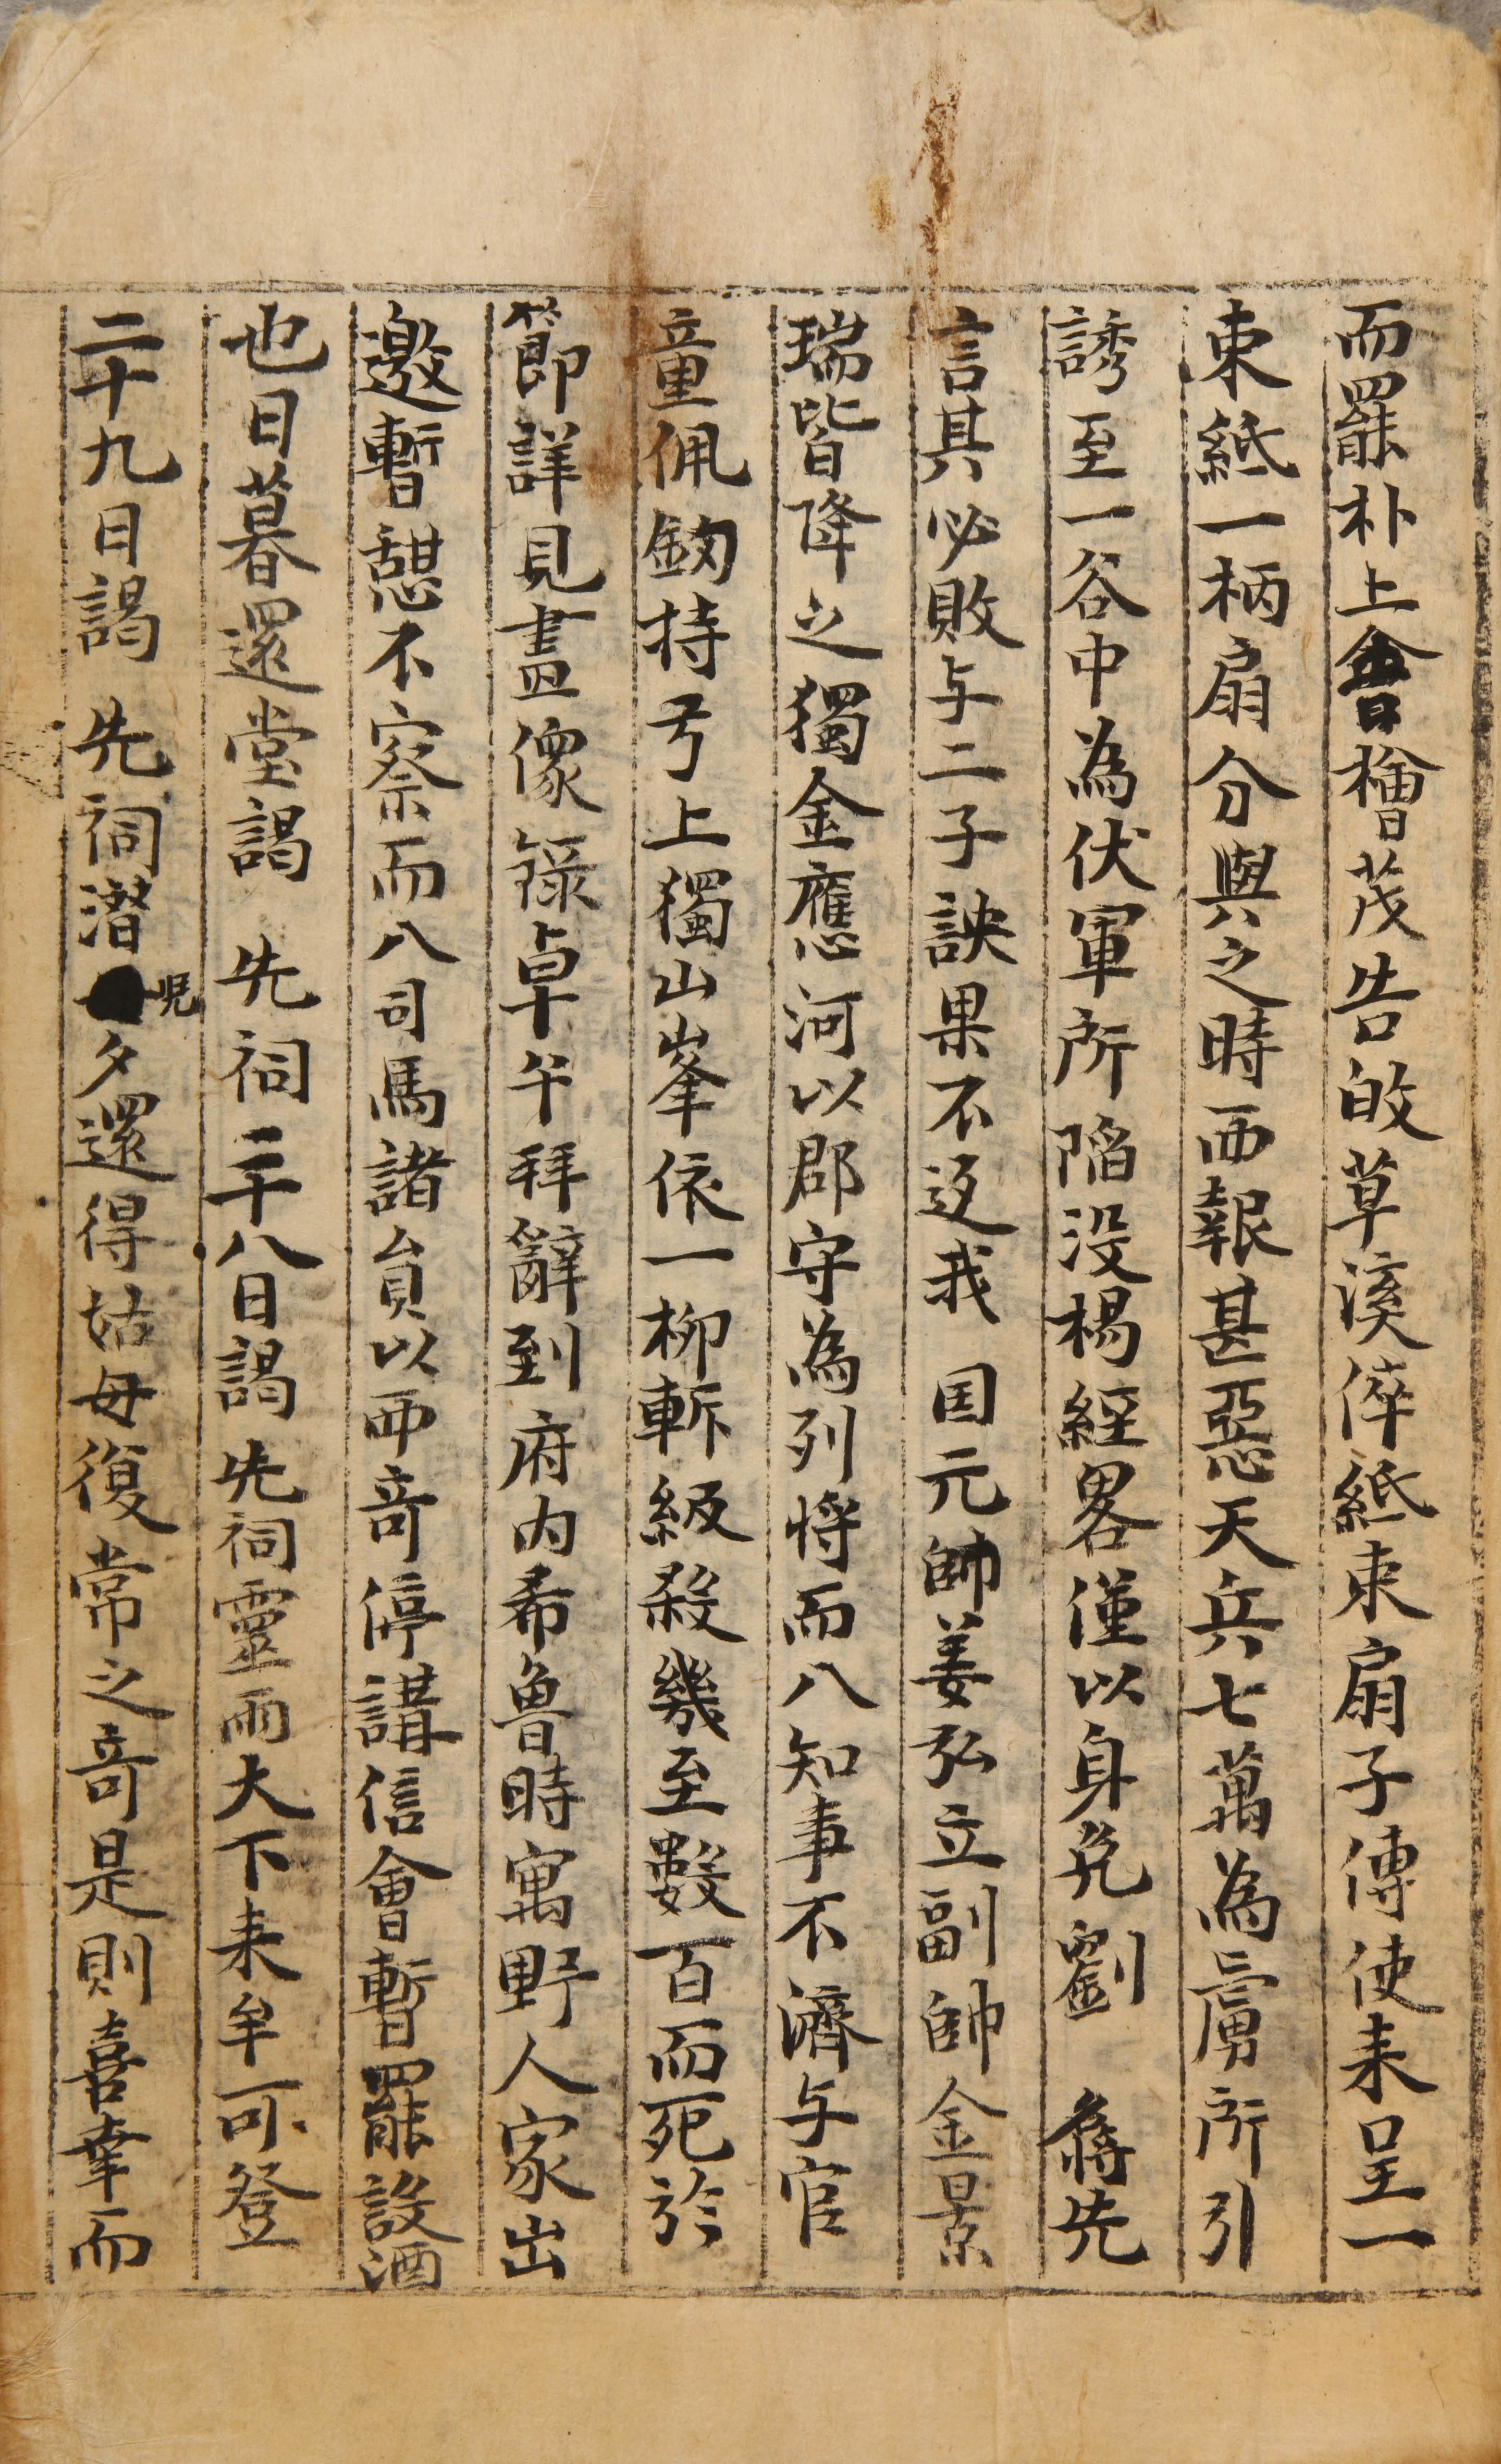 而罷朴上舍檜茂告皈草溪倅紙束扇子傳使来呈一
束紙一柄扇分與之時西報甚惡天兵七萬為虜所引
誘至一谷中為伏軍所陷没楊經畧僅以身免劉 先
言其必敗与二子訣果不返我 国元帥姜弘立副帥金景
瑞皆降之獨金應河以郡守為列将而八知事不濟与官
童佩劒持弓上獨山峯依一柳斬級殺幾至數百而死於
節詳見盡像録卓午拜辭到府内希魯時寓野人家出
邀暫憇不察而八司馬諸貟以雨竒停講信會暫罷設酒
也日暮還堂謁 先祠二十八日謁 先祠靈雨大下来牟可登
二十九日謁 先祠潜児夕還得姑母復常之竒是則喜幸而